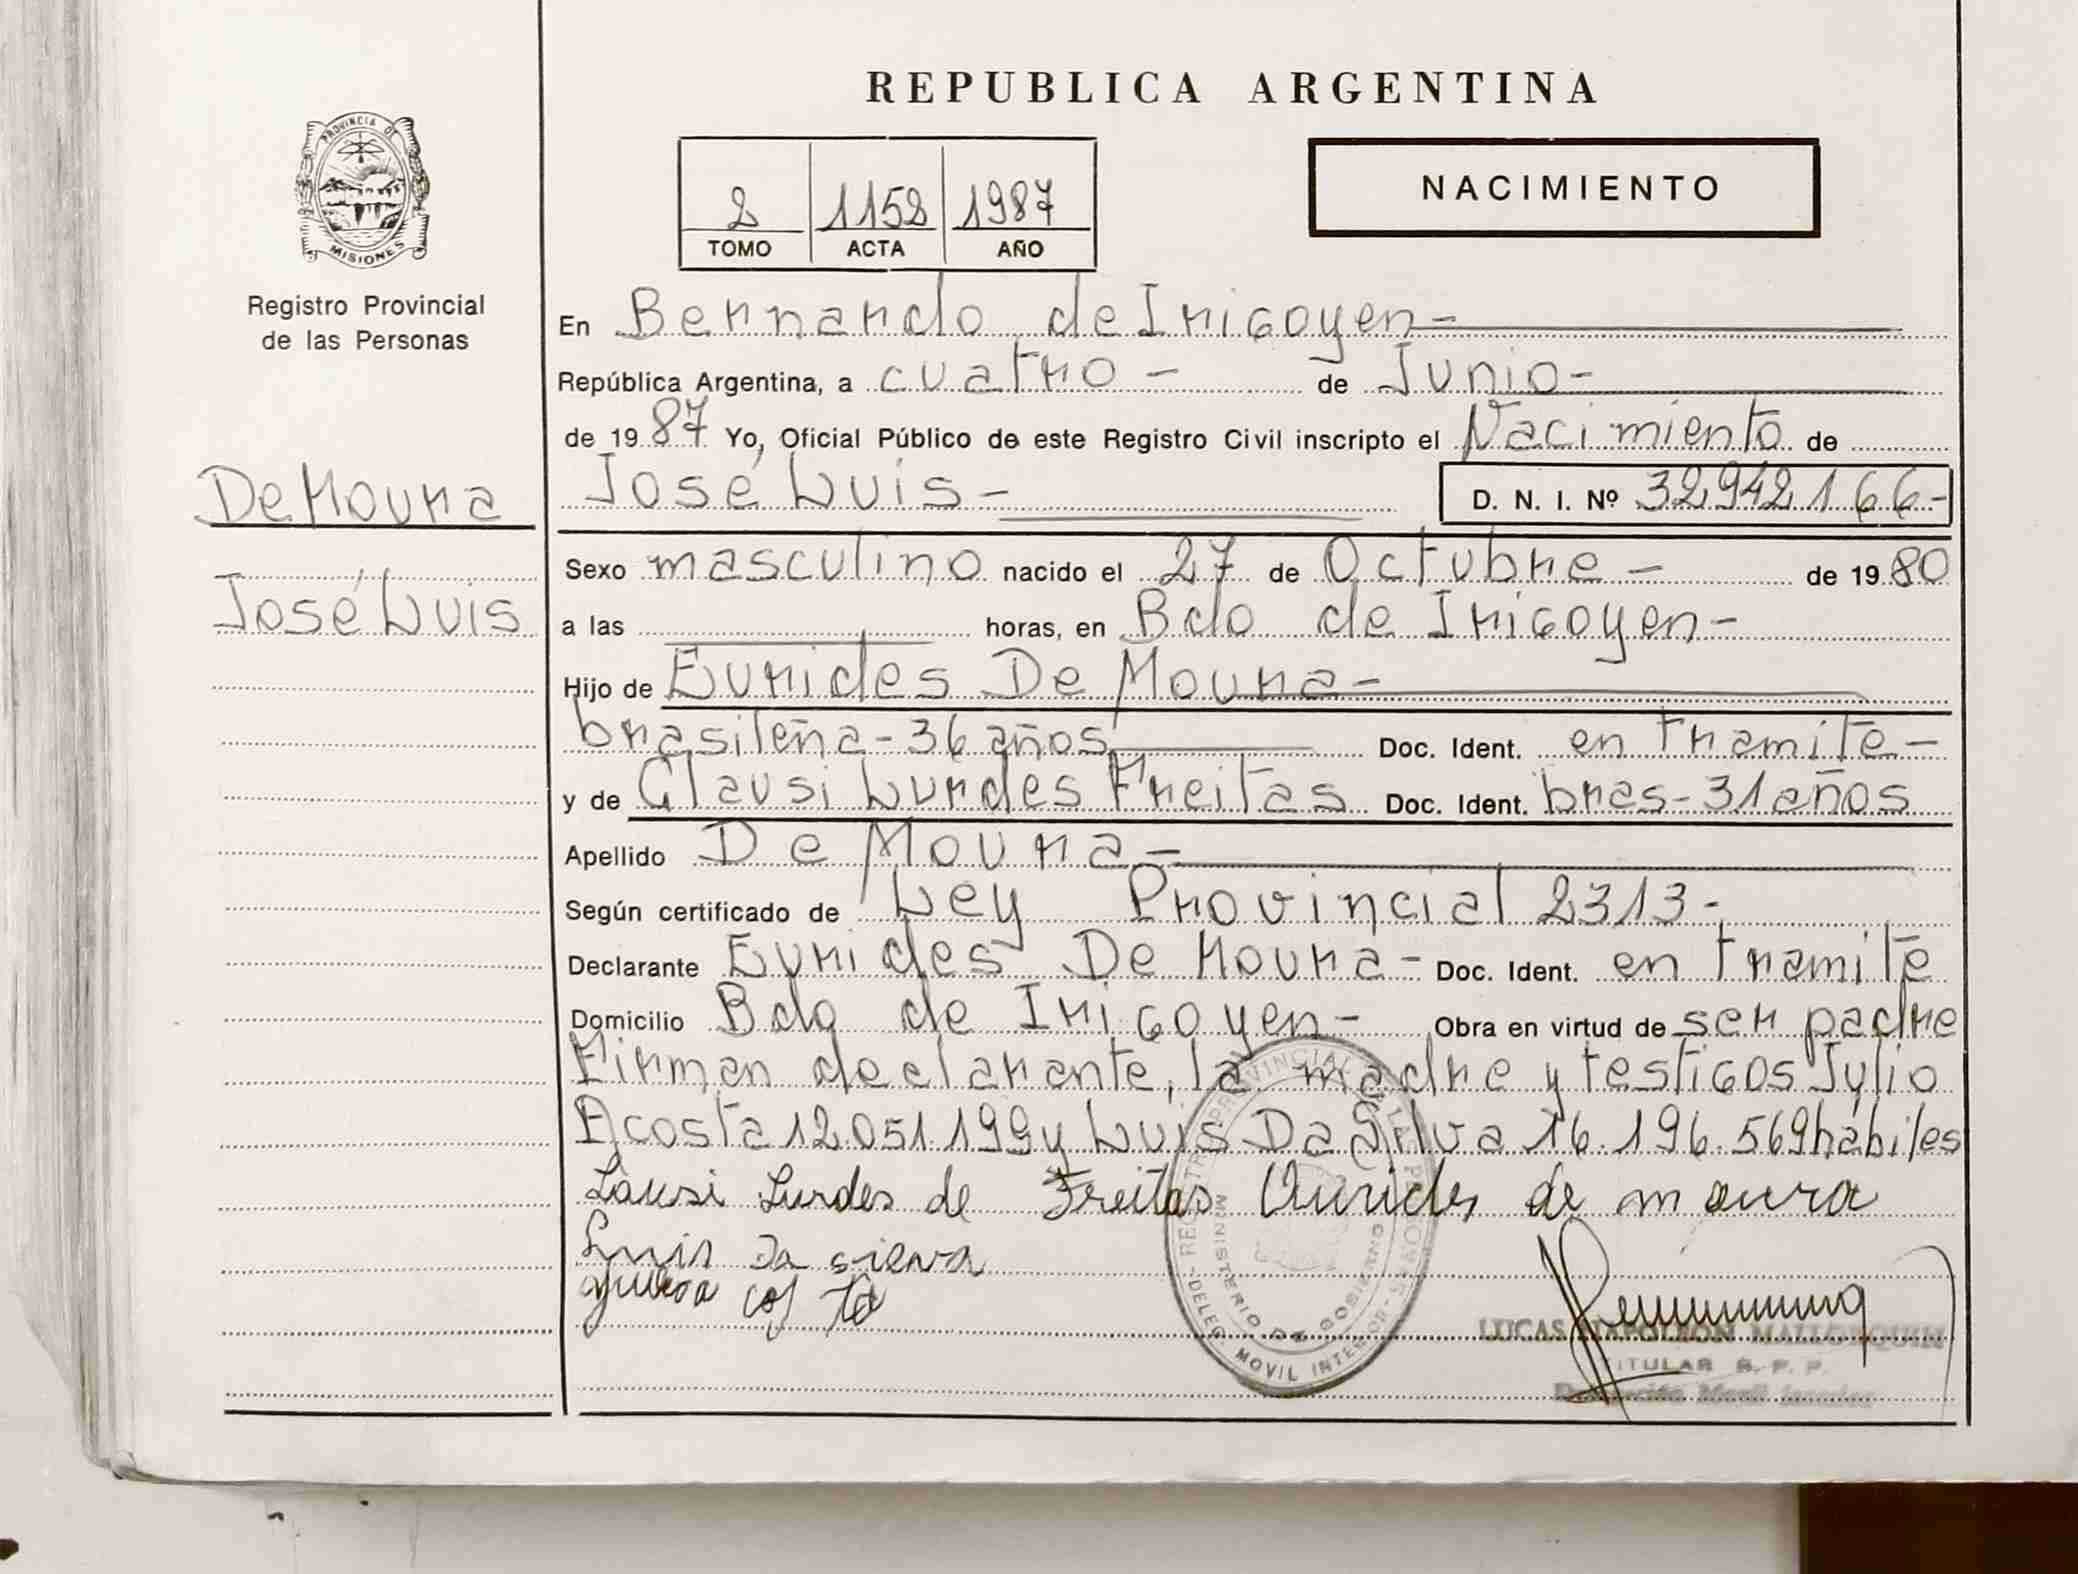 REPUBLICA ARGENTINA
PROVINCIA D
MISIONES
Registro Provincial
de las Personas
2 1152 1987
TOMO ACTA AÑO
NACIMIENTO
En Bernardo de Irigoyen-
República Argentina, a cuatro - de Junio-
de 1987 Yo, Oficial Público de este Registro Civil inscripto el Nacimiento de
De Moura
José Luis- D. N. I. Nº 32.942.166-
Sexo masculino nacido el 27 de Octubre - de 1980
José Luis
a las horas, en Bdo de Irigoyen-
Hijo de Eurides De Moura-
brasileña-36 años Doc. Ident. en tramite-
y de Clausi Lurdes Freitas Doc. Ident. bras-31 años
Apellido De Moura-
Según certificado de Ley Provincial 2313-
Declarante Eurides De Moura- Doc. Ident. en tramite
Domicilio Bdo de Irigoyen- Obra en virtud de ser padre
Firman declarante, la madre y testigos Julio
Acosta 12.051.199 y Luis Da Silva 16.196.569 hábiles
Lausi Lurdes de Freitas Ourides de moura
Luis Da sierva
cos ta
REGISTRO PROVINCIAL DE LAS PERSONAS
MINISTERIO DE GOBIERNO
DELEG. MOVIL INTERIOR
LUCAS NAPOLEON MALLORQUIN
TITULAR R. P. P.